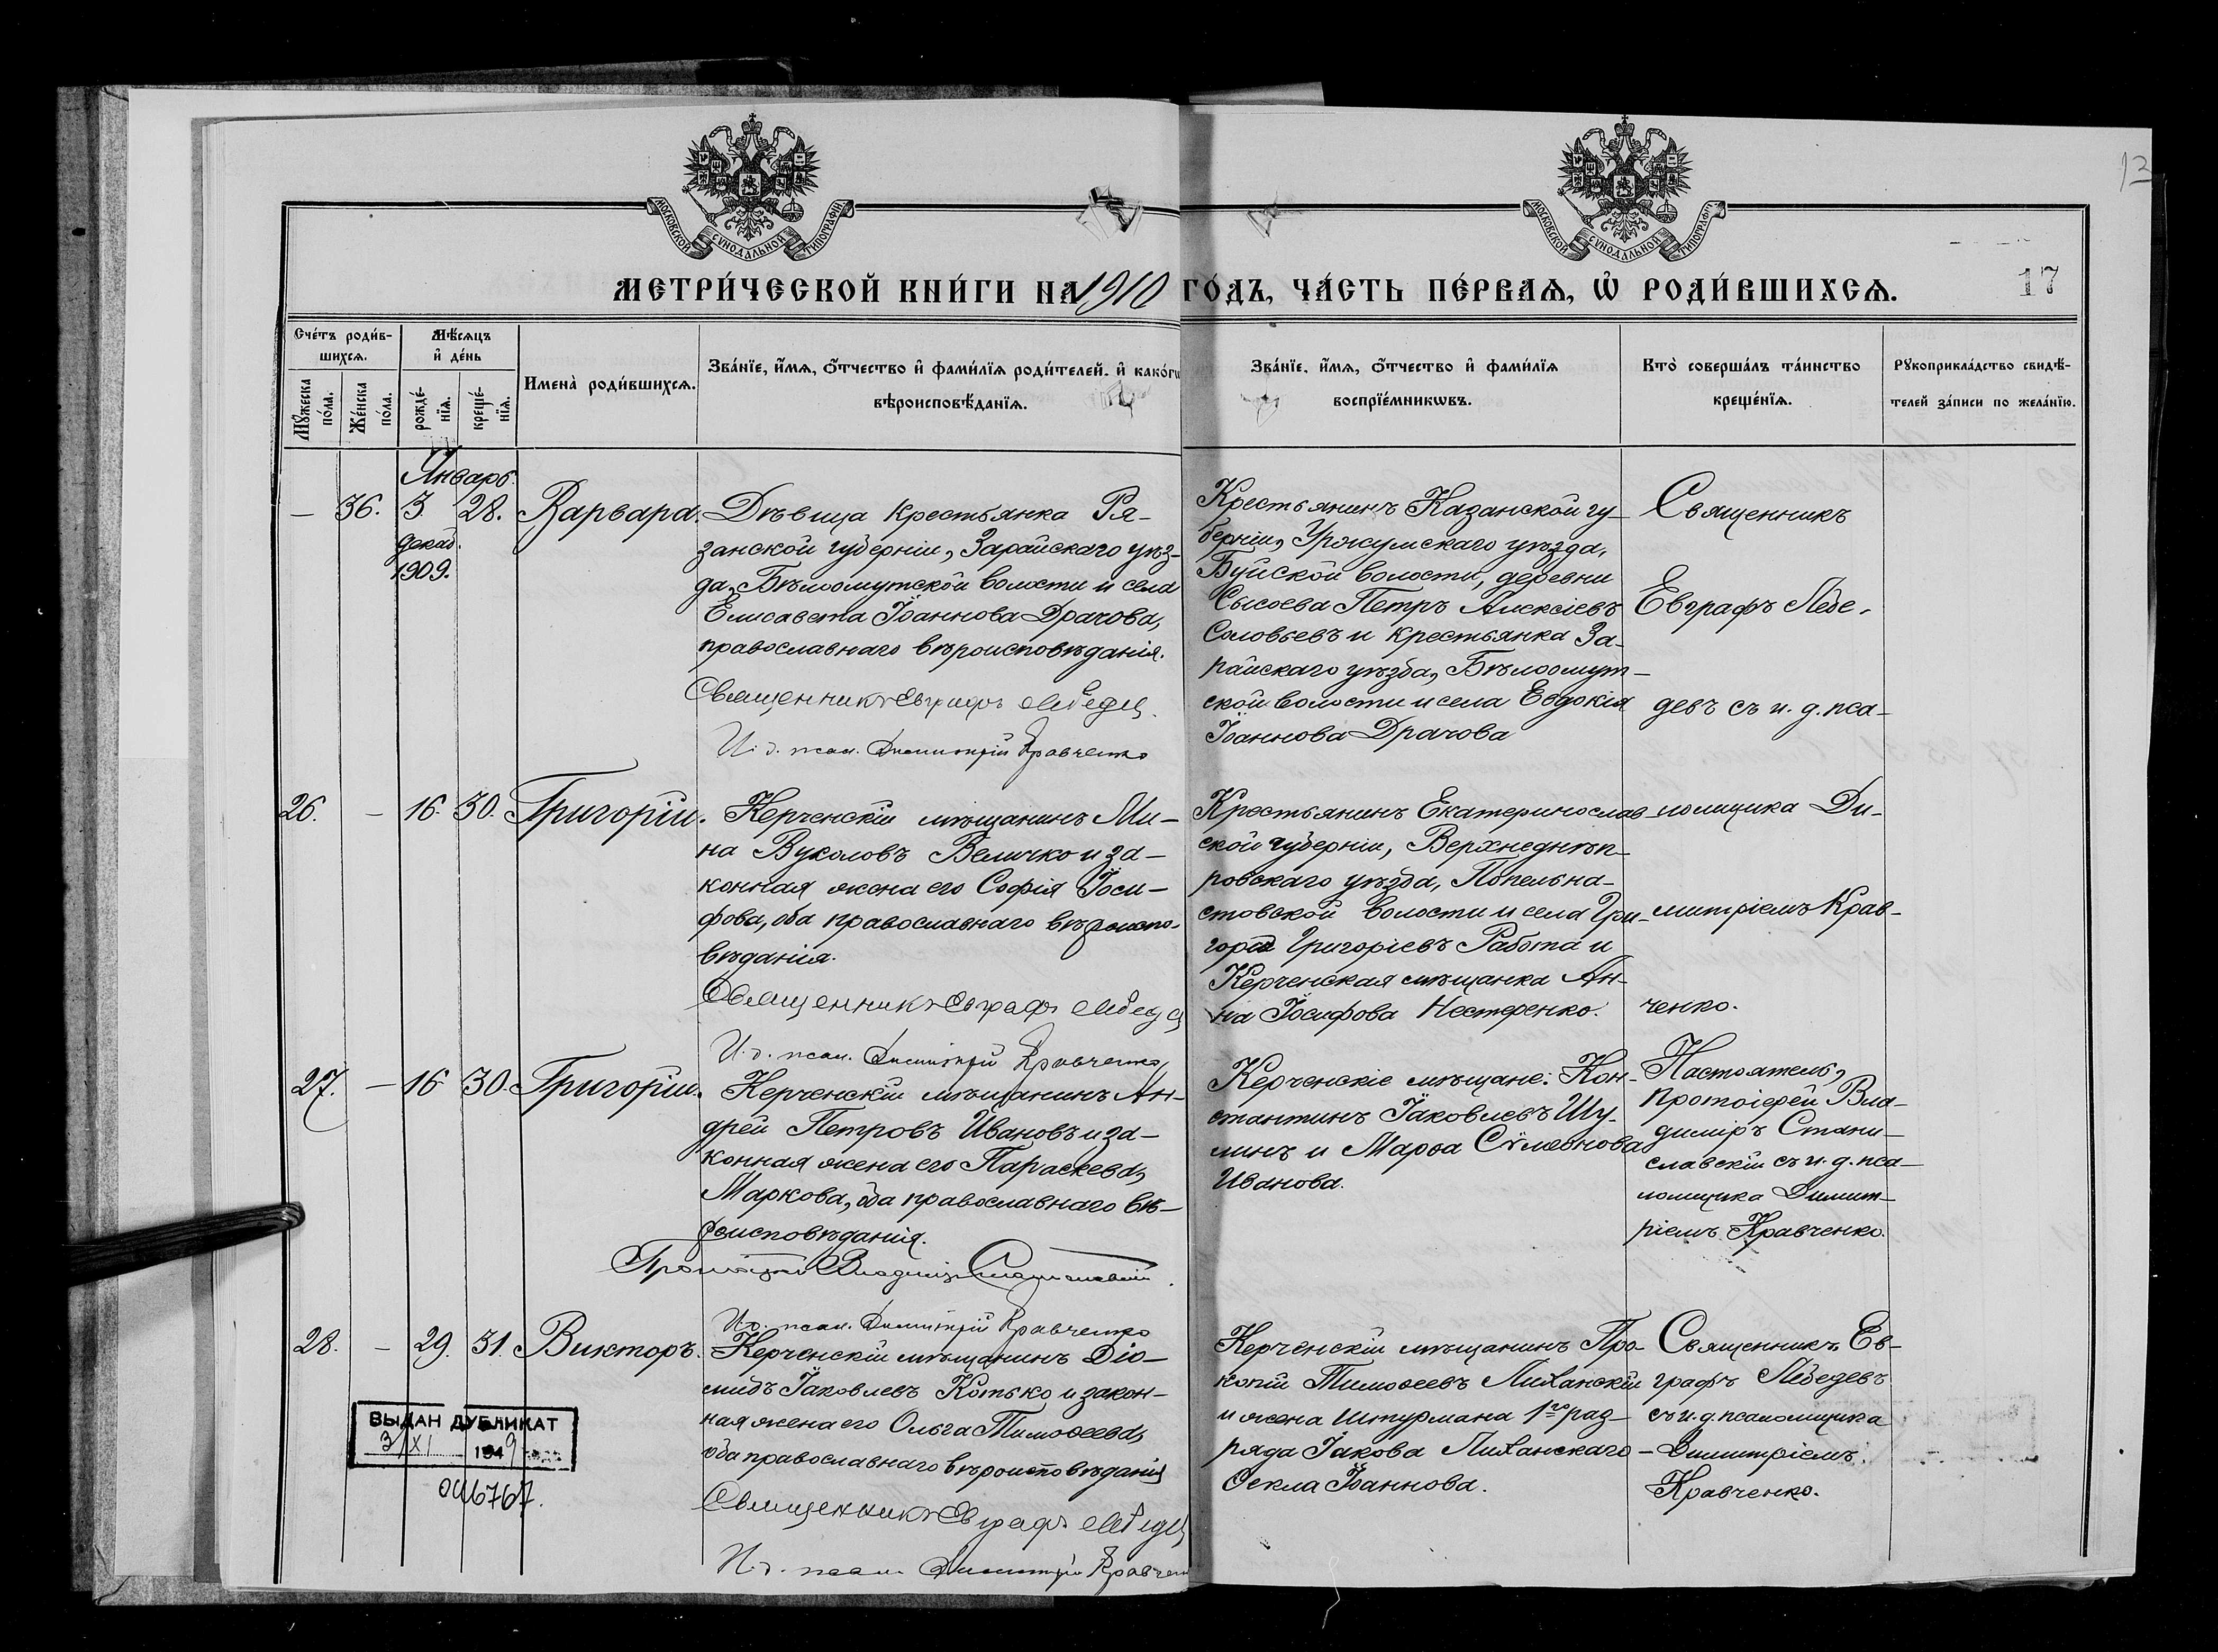 МОСКОВСКОЙ СѴНОДАЛЬНОЙ ТИПОГРАФІИ
МОСКОВСКОЙ СѴНОДАЛЬНОЙ ТИПОГРАФІИ
МЕТРИ́ЧЕСКОЙ КНИ́ГИ НА 1910 ГО́ДЪ, ЧА́СТЬ ПЕ́РВАѦ, Ѡ҆ РОДИ́ВШИХСѦ.
17
Сче́тъ роди́в-
шихсѧ.
Мꙋ́жеска
по́ла.
Же́нска
по́ла.
Мѣ́сѧцъ
и҆ де́нь
рожде́-
нїѧ.
креще́-
нїѧ.
Имена̀ роди́вшихсѧ.
Зва́нїе, и҆́мѧ, ѻ҆́тчество и҆ фами́лїѧ роди́телей, и҆ како́гѡ
вѣроисповѣ́данїѧ.
Зва́нїе, и҆́мѧ, ѻ҆́тчество и҆ фами́лїѧ
воспрїе́мникѡвъ.
Кто̀ соверша́лъ та́инство
креще́нїѧ.
Рꙋкоприкла́дство свидѣ́-
телей за́писи по жела́нїю.
Январь.
— 36. 3. 28. Варвара.
декаб.
1909.
Дѣвица крестьянка Ря-
занской губерніи, Зарайскаго уѣз-
да, Бѣлоомутской волости и села
Елисавета Іоаннова Драчова,
православнаго вѣроисповѣданія.
Священникъ Евграфъ Лебедев
И. д. псал. Димитрій Кравченко
Крестьянинъ Казанской гу-
берніи, Уржумскаго уѣзда,
Буйской волости, деревни
Сысоева Петръ Алексіевъ
Соловьевъ и крестьянка За-
райскаго уѣзда, Бѣлоомут-
ской волости и села Евдокія
Іоаннова Драчова
Священникъ
Евграфъ Лебе-
девъ съ и. д. пса-
26. — 16. 30. Григорій.
Керченскій мѣщанинъ Ми-
на Вуколовъ Величко и за-
конная жена его Софія Іоси-
фова, оба православнаго вѣроиспо-
вѣданія.
Священникъ Евграфъ Лебедев
И. д. псал. Димитрій Кравченко
Крестьянинъ Екатеринослав-
ской губерніи, Верхнеднѣп-
ровскаго уѣзда, Попельна-
стовской волости и села Гри-
горій Григоріевъ Работа и
Керченская мѣщанка Ан-
на Іосифова Нестеренко.
ломщика Ди-
митріемъ Крав-
ченко.
27. — 16 30. Григорій.
Керченскій мѣщанинъ Ан-
дрей Петровъ Ивановъ и за-
конная жена его Параскева
Маркова, оба православнаго вѣ-
роисповѣданія.
Протоіерей Владиміръ Станиславскій
И. д. псал. Димитрій Кравченко
Керченскіе мѣщане: Кон-
стантинъ Іаковлевъ Шу-
линъ и Марѳа Сѵмеонова
Иванова.
Настоятель,
Протоіерей Вла-
диміръ Стани-
славскій съ и. д. пса-
ломщика Димит-
ріемъ Кравченко.
28. — 29. 31. Викторъ.
Керченскій мѣщанинъ Діо-
мидъ Іаковлевъ Котько и закон-
ная жена его Ольга Тимоѳеева,
оба православнаго вѣроисповѣданія
Священникъ Евграфъ Лебедев
И. д. псал. Димитрій Кравченко
Керченскій мѣщанинъ Про-
копій Тимоѳеевъ Лиханскій
и жена штурмана 1го раз-
ряда Іакова Лиханскаго
Ѳекла Іоаннова.
Священникъ Ев-
графъ Лебедевъ
съ и. д. псаломщика
Димитріемъ
Кравченко.
ВЫДАН ДУБЛИКАТ
3/XI 1949
046767.